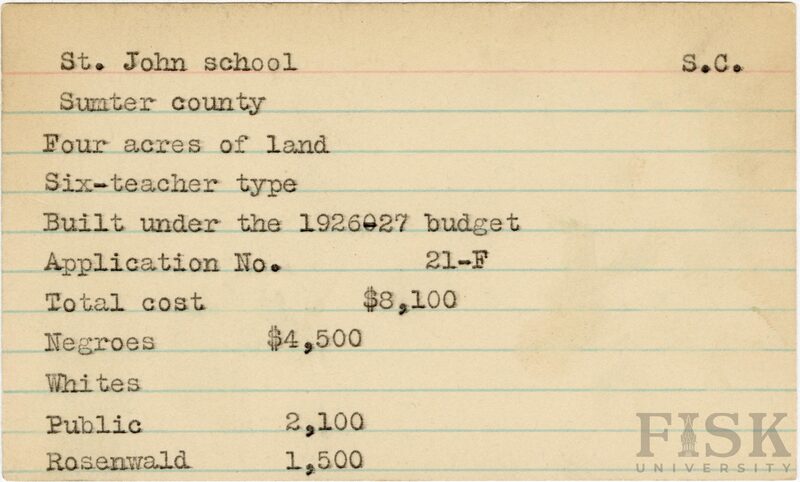 St. John school S.C.
Sumter county
Four acres of land
Six-teacher type
Built under the 1926-27 budget
Application No. 21-F
Total cost $8,100
Negroes $4,500
Whites
Public 2,100
Rosenwald 1,500
FISK
UNIVERSITY